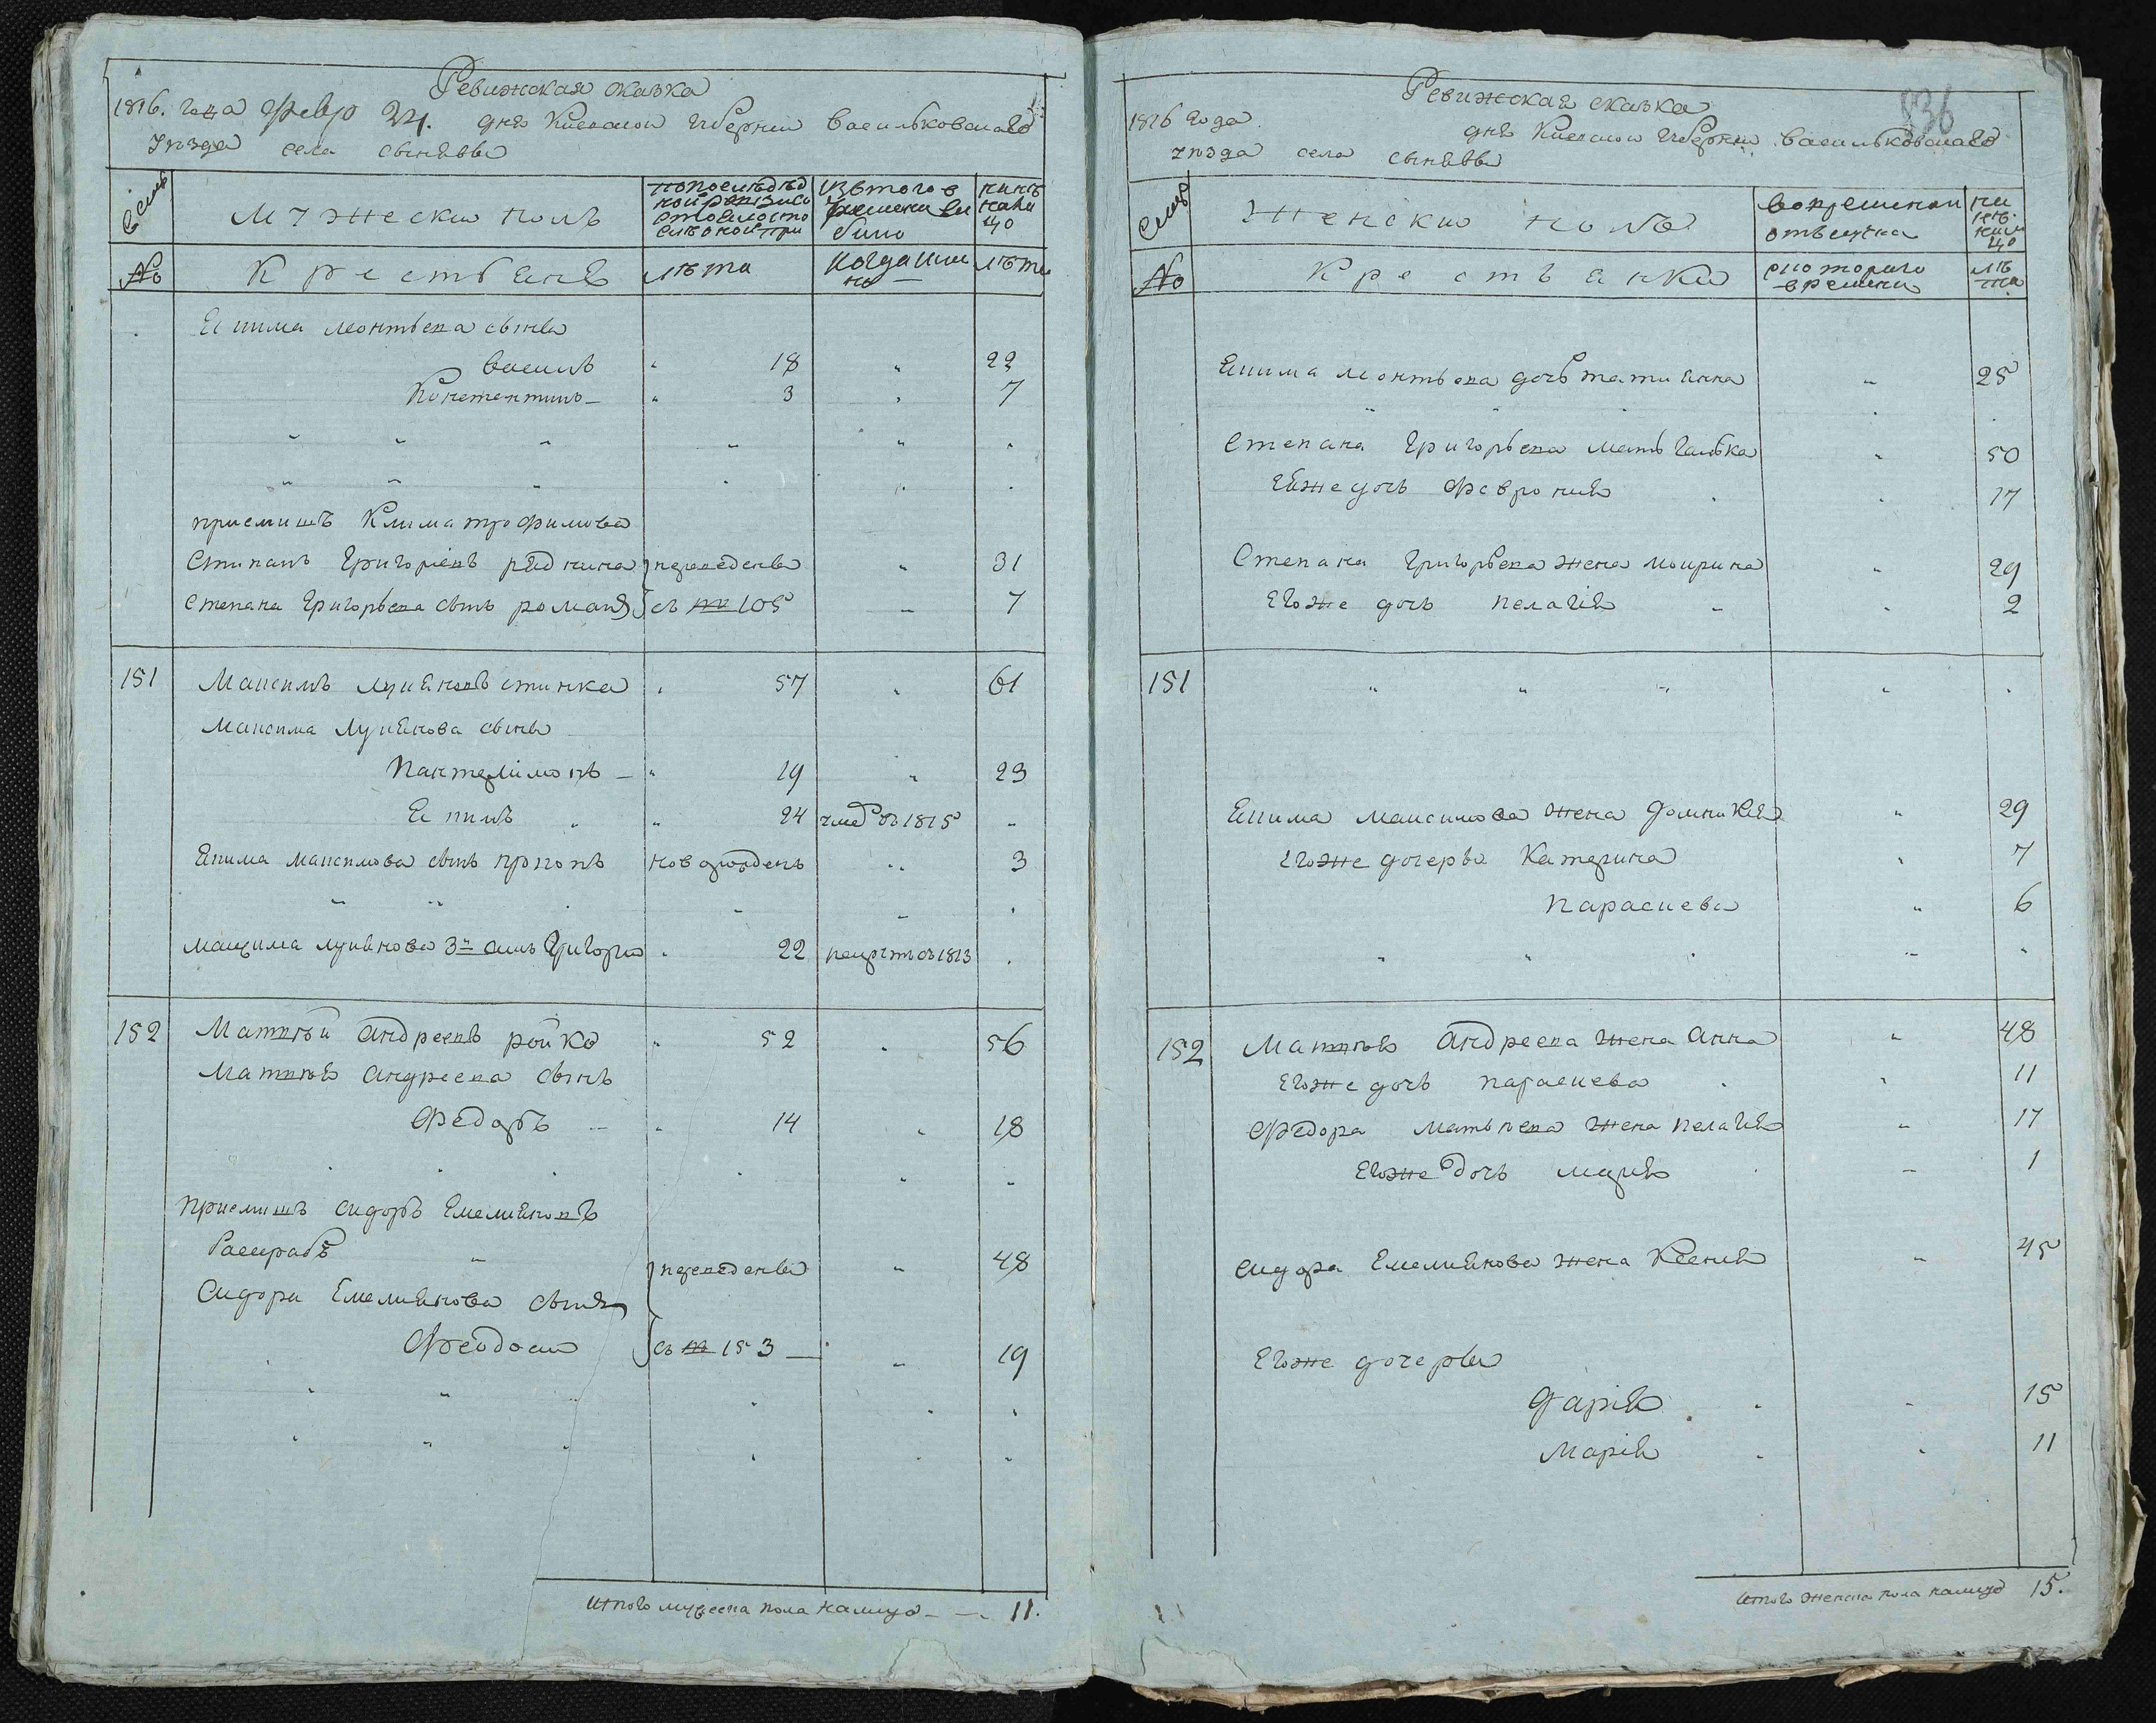 Ревижская сказка
1816. года Февр 24. дня Киевской губернии Васильковскаго
уѣзда села Сынявы
Семьи
Мужески полъ
по последнѣй ревизии состояло и после оной при
изъ того времени вы было
нынѣ на лицо
№
Крестьянъ
лѣта
когда имянно
лѣта
Екима Леонтьева сыны
Василъ " 18 " 22
Константинъ " 3 " 7
приемишъ Клима трофимова
Степанъ Григориевъ рядкина переведены " 31
Степана Григорьева сынъ романъ съ № 105 " 7
151 Максимъ Лукяновъ стинка " 57 " 61
Максима Лукянова сыны
Пантелимонъ " 19 " 23
Екимъ " 24 умер въ 1815 "
Екима Максимова сынъ прокопъ новорожденъ " 3
Максима лукянова 3й сынъ Григорий " 22 рекрутъ съ 1813
152 Матвѣй Андреевъ ройко " 52 " 56
Матвѣя Андреева сынъ
Федоръ " 14 " 18
Приемишъ Сидоръ Емелияновъ
переведены " 48
Сидора Емелиянова сынъ
Феодосий съ № 153 " 19
Итого мужеска пола налицо 11.
836
Ревижская сказка
1816 года дня Киевской губернии Васильковскаго
уѣзда села Сынявы
Семьи
Женски полъ
во временной отлучке
ны нѣ на ли цо
№
Крестьянки
с которого времени
лѣта
Екима Леонтьева дочь татиянна " 25
Степана Григорьева мать Галька " 50
Еяже дочь Феврония " 17
Степана Григорьева жена Моирина " 29
Егоже дочь Пелагия " 2
151
Екима Максимова жена Домникия " 29
Егоже дочеры Катерина " 7
Параскева " 6
152 Матвѣя Андреева жена Анна " 48
Егоже дочь параскева " 11
Федора Матвѣева жена пелагия " 17
Егоже дочь мария " 1
Сидора Емелиянова жена Ксения " 45
Егоже дочеры
Дарія " 15
Марія " 11
Итого женска пола налицо 15.